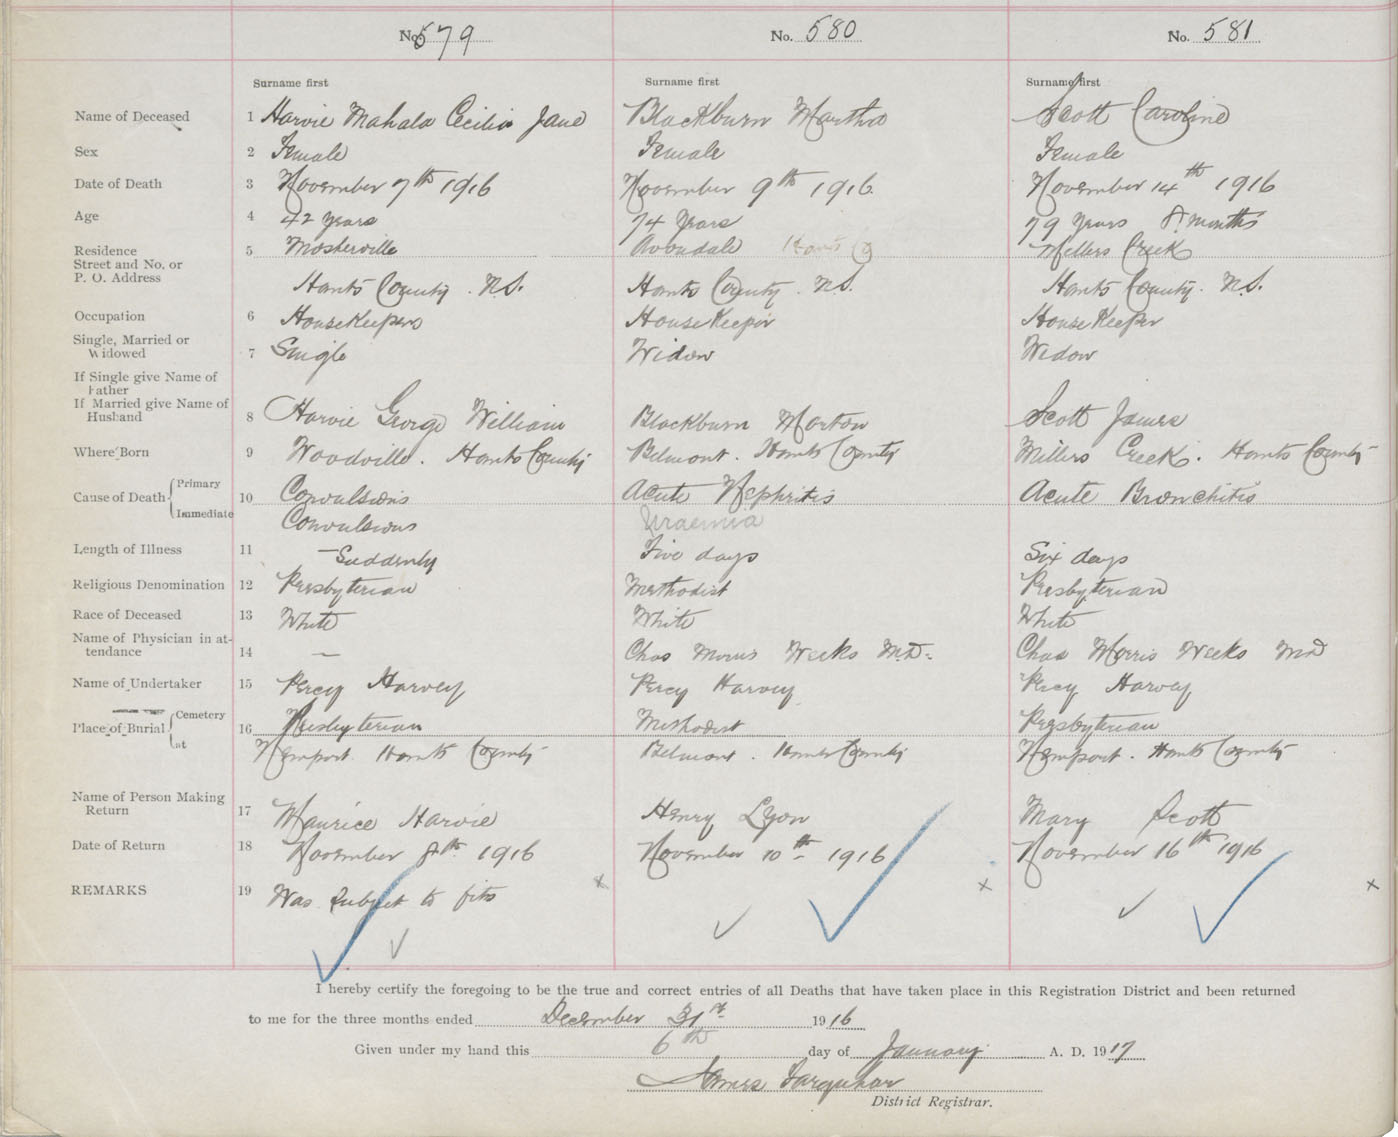 No. 579 No. 580 No. 581
Surname first Surname first Surname first
Name of Deceased 1 Harvie Mahala Cecilia Jane Blackburn Martha Scott Caroline
Sex 2 Female Female Female
Date of Death 3 November 7th 1916 November 9th 1916 November 14th 1916
Age 4 42 years 74 years 79 years 8 months
Residence 5 Mosherville Avondale Hants Co Millers Creek
Street and No. or
P. O. Address Hants County. N.S. Hants County. N.S. Hants County. N.S.
Occupation 6 HouseKeepers HouseKeeper HouseKeeper
Single, Married or
Widowed 7 Single Widow Widow
If Single give Name of
Father
If Married give Name of
Husband 8 Harvie George William Blackburn Morton Scott James
Where Born 9 Woodville. Hants County Belmont. Hants County Millers Creek. Hants County
Cause of Death Primary 10 Convulsions Acute Nephritis Acute Bronchitis
Immediate Convulsions Uraemia
Length of Illness 11 – Suddenly Five days Six days
Religious Denomination 12 Presbyterian Methodist Presbyterian
Race of Deceased 13 White White White
Name of Physician in at-
tendance 14 — Chas Morris Weeks MD. Chas Morris Weeks MD
Name of Undertaker 15 Percy Harvey Percy Harvey Percy Harvey
Place of Burial Cemetery 16 Presbyterian Methodist Presbyterian
at Newport. Hants County Belmont. Hants County Newport. Hants County
Name of Person Making
Return 17 Maurice Harvie Henry Lyon Mary Scott
Date of Return 18 November 8th 1916 November 10th 1916 November 16th 1916
REMARKS 19 Was subject to fits
I hereby certify the foregoing to be the true and correct entries of all Deaths that have taken place in this Registration District and been returned
to me for the three months ended December 31st 1916
Given under my hand this 6th day of January A. D. 1917
James Farquhar
District Registrar.